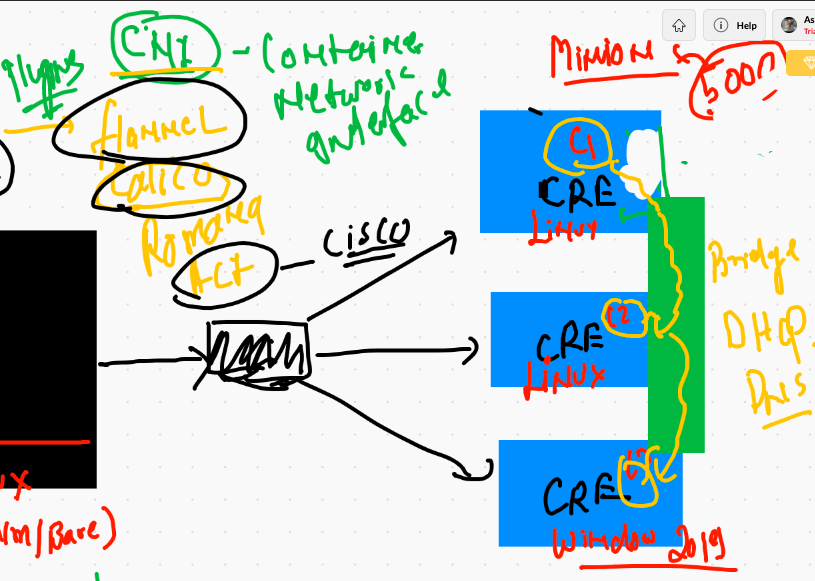 Help
As
CNI - Container
Network
Interface
Plugins
flannel
Calico
Romana
ACI - Cisco
Minion
5000
C1
CRE
Linux
C2
CRE
LiNUX
CRE
Window 2019
Bridge
DHCP
DNS
(VM/Bare)